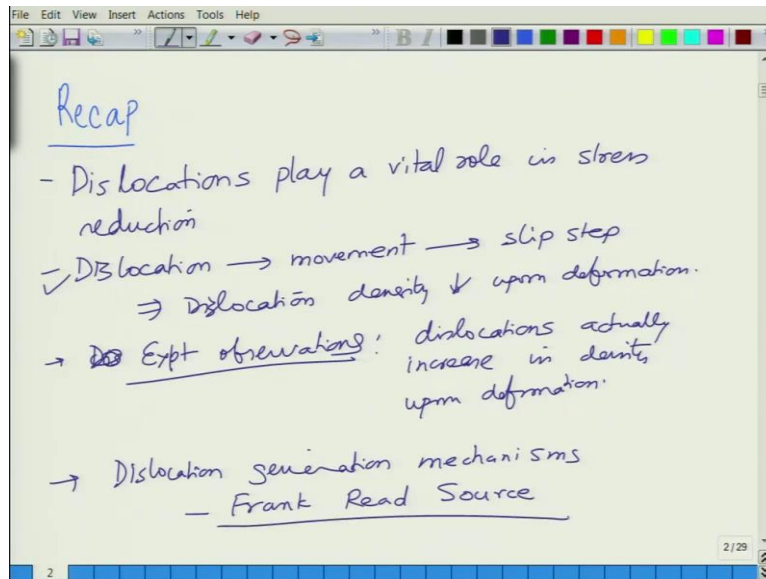 File Edit View Insert Actions Tools Help
B I
Recap
- Dislocations play a vital role in stress
reduction
- Dislocation → movement → slip step
⇒ Dislocation density ↓ upon deformation.
→ Expt observations: dislocations actually
increase in density
upon deformation.
→ Dislocation generation mechanisms
- Frank Read Source
2/29
2